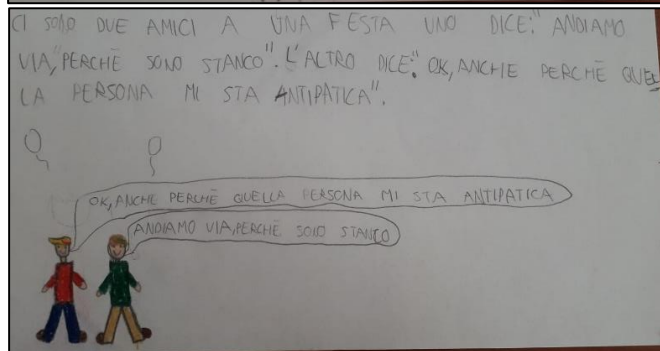 CI SONO DUE AMICI A UNA FESTA UNO DICE:" ANDIAMO
VIA,"PERCHÈ SONO STANCO". L'ALTRO DICE:" OK, ANCHE PERCHÈ QUEL
LA PERSONA MI STA ANTIPATICA".
OK, ANCHE PERCHÈ QUELLA PERSONA MI STA ANTIPATICA
ANDIAMO VIA, PERCHÈ SONO STANCO